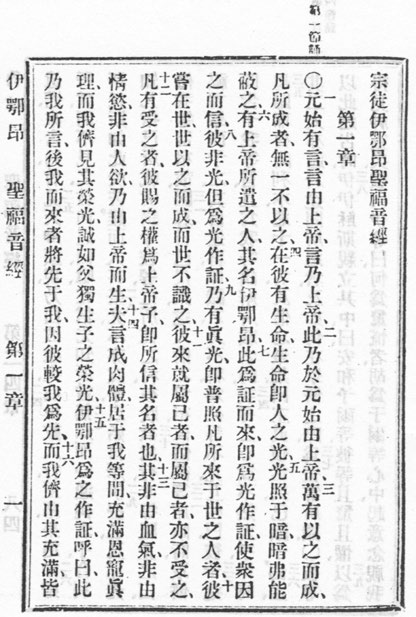 第一節
宗徒伊鄂昂聖福音經
第一章
〇元始有言言由上帝言乃上帝此乃於元始由上帝萬有以之而成
一 二 三
凡所成者無一不以之在彼有生命生命即人之光光照于暗暗弗能
四 五
蔽之有上帝所遣之人其名伊鄂昂此爲証而來即爲光作証使衆因
六 七
之而信彼非光但爲光作証乃有眞光即普照凡所來于世之人者彼
八 九 十
嘗在世世以之而成而世不識之彼來就屬己者而屬己者亦不受之
十一
凡有受之者彼賜之權爲上帝子即所信其名者也其非由血氣非由
十二 十三
情慾非由人欲乃由上帝而生夫言成肉體居于我等間充滿恩寵眞
十四
理而我儕見其榮光誠如父獨生子之榮光伊鄂昂爲之作証呼曰此
十五
乃我所言後我而來者將先于我因彼較我爲先而我儕由其充滿皆
十六
伊鄂昂 聖福音經 第一章 一